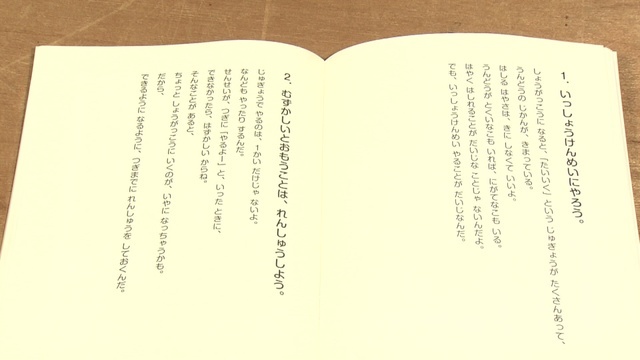 1．いっしょうけんめいにやろう。
しょうがっこうに なると、「たいいく」という じゅぎょうが たくさんあって、
うんどうの じかんが、きまっている。
はしる はやさは、きに しなくて いいよ。
うんどうが とくいなこも いれば、にがてなこも いる。
はやく はしれることが だいじな ことじゃ ないんだよ。
でも、いっしょうけんめい やることが だいじなんだ。
2．むずかしいとおもうことは、れんしゅうしよう。
じゅぎょうで やるのは、1かい だけじゃ ないよ。
なんども やったり するんだ。
せんせいが、つぎに「やるよー」と、いった ときに、
できなかったら、はずかしい からね。
そんなことが あると、
ちょっと しょうがっこうに いくのが、いやに なっちゃうかも。
だから、
できるように なるように、つぎまでに れんしゅうを しておくんだ。